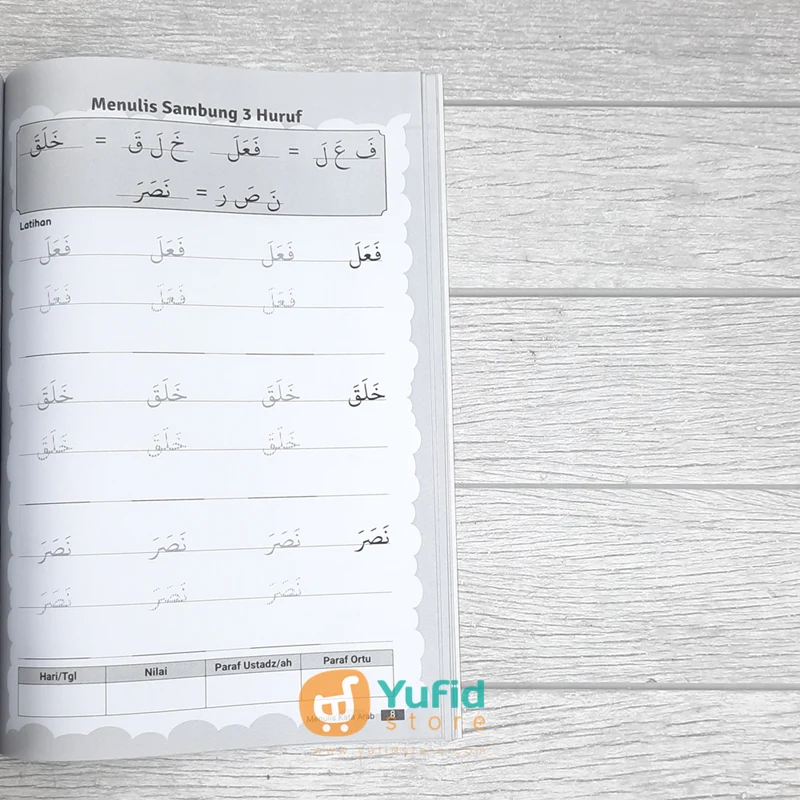 Menulis Sambung 3 Huruf
فَ عَ لَ = فَعَلَ خَ لَ قَ = خَلَقَ
نَ صَ رَ = نَصَرَ
Latihan
فَعَلَ فَعَلَ فَعَلَ فَعَلَ
فَعَلَ فَعَلَ فَعَلَ
خَلَقَ خَلَقَ خَلَقَ خَلَقَ
خَلَقَ خَلَقَ خَلَقَ
نَصَرَ نَصَرَ نَصَرَ نَصَرَ
نَصَرَ نَصَرَ نَصَرَ
Hari/Tgl Nilai Paraf Ustadz/ah Paraf Ortu
Menulis Kata Arab 8
Yufid
store
www.yufidstore.com